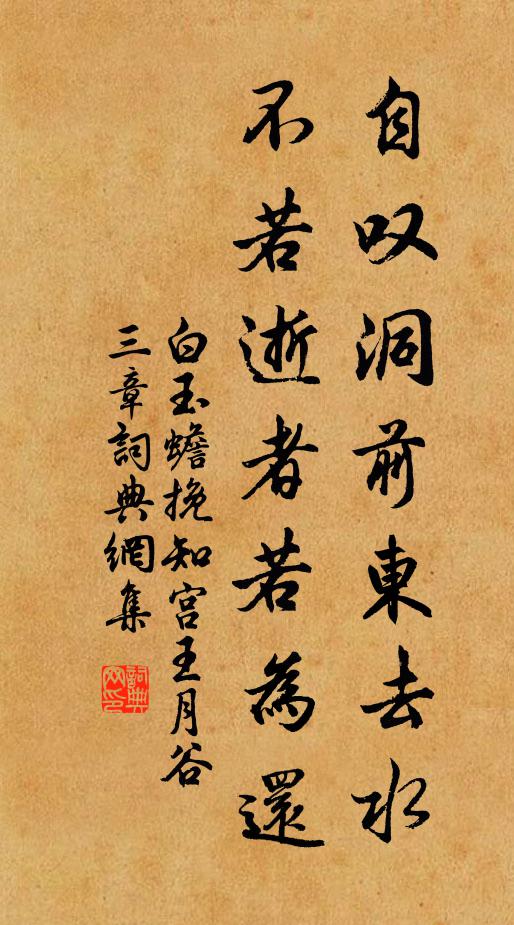 自叹洞前東去水
不若逝者若為還
白玉蟾挽知宫王月谷
三章詞典網集
詞典
网印